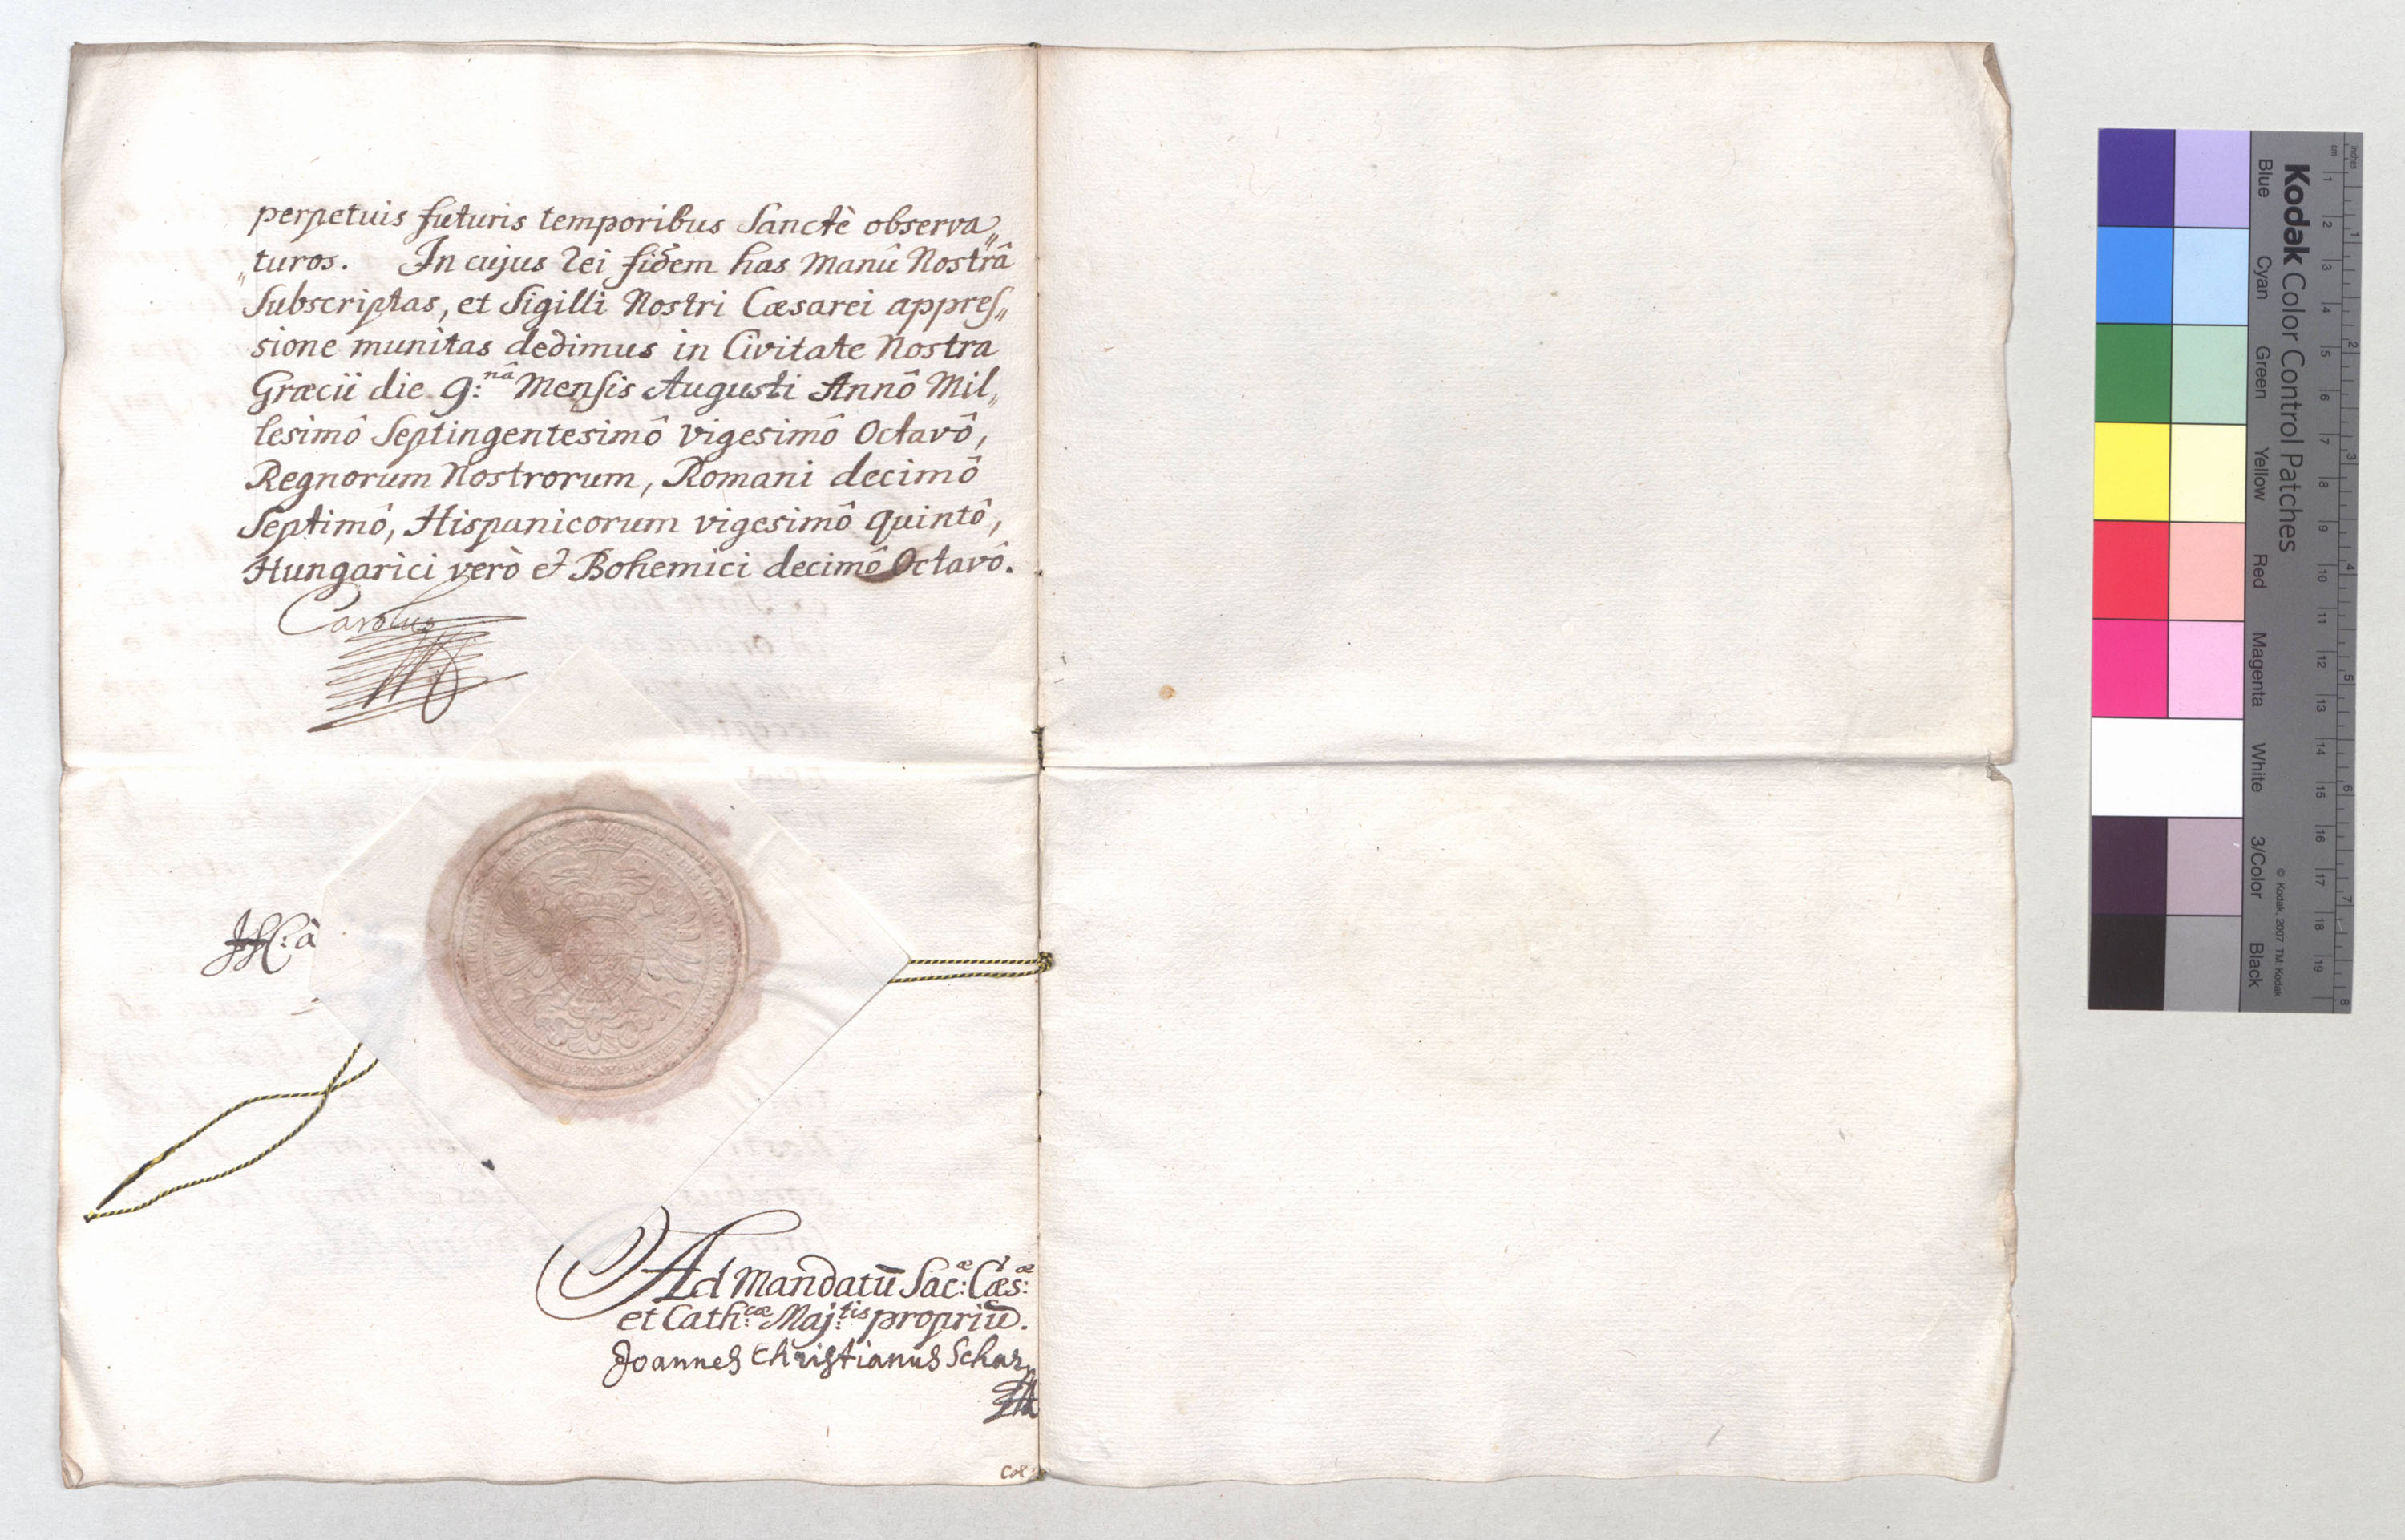 perpetuis futuris temporibus Sanctè observa„
„turos. In cujus rei fidem has Manû Nostrâ
Subscriptas, et Sigilli Nostri Cæsarei appres„
sione munitas dedimus in Civitate Nostra
Græcii die 9:nâ Mensis Augusti Annô Mil„
lesimô Septingentesimô vigesimô Octavô,
Regnorum Nostrorum, Romani decimô
Septimô, Hispanicorum vigesimô quintô,
Hungarici verò et Bohemici decimô Octavô.
Carolus
Ad Mandatū Sac:æ Cæs:æ
et Cath:cæ Maj:tis propriū.
Joannes Christianus Schar
Col:
Kodak Color Control Patches
Blue Cyan Green Yellow Red Magenta White 3/Color Black
© Kodak, 2007 TM: Kodak
inches 1 2 3 4 5 6 7 8
cm 1 2 3 4 5 6 7 8 9 10 11 12 13 14 15 16 17 18 19